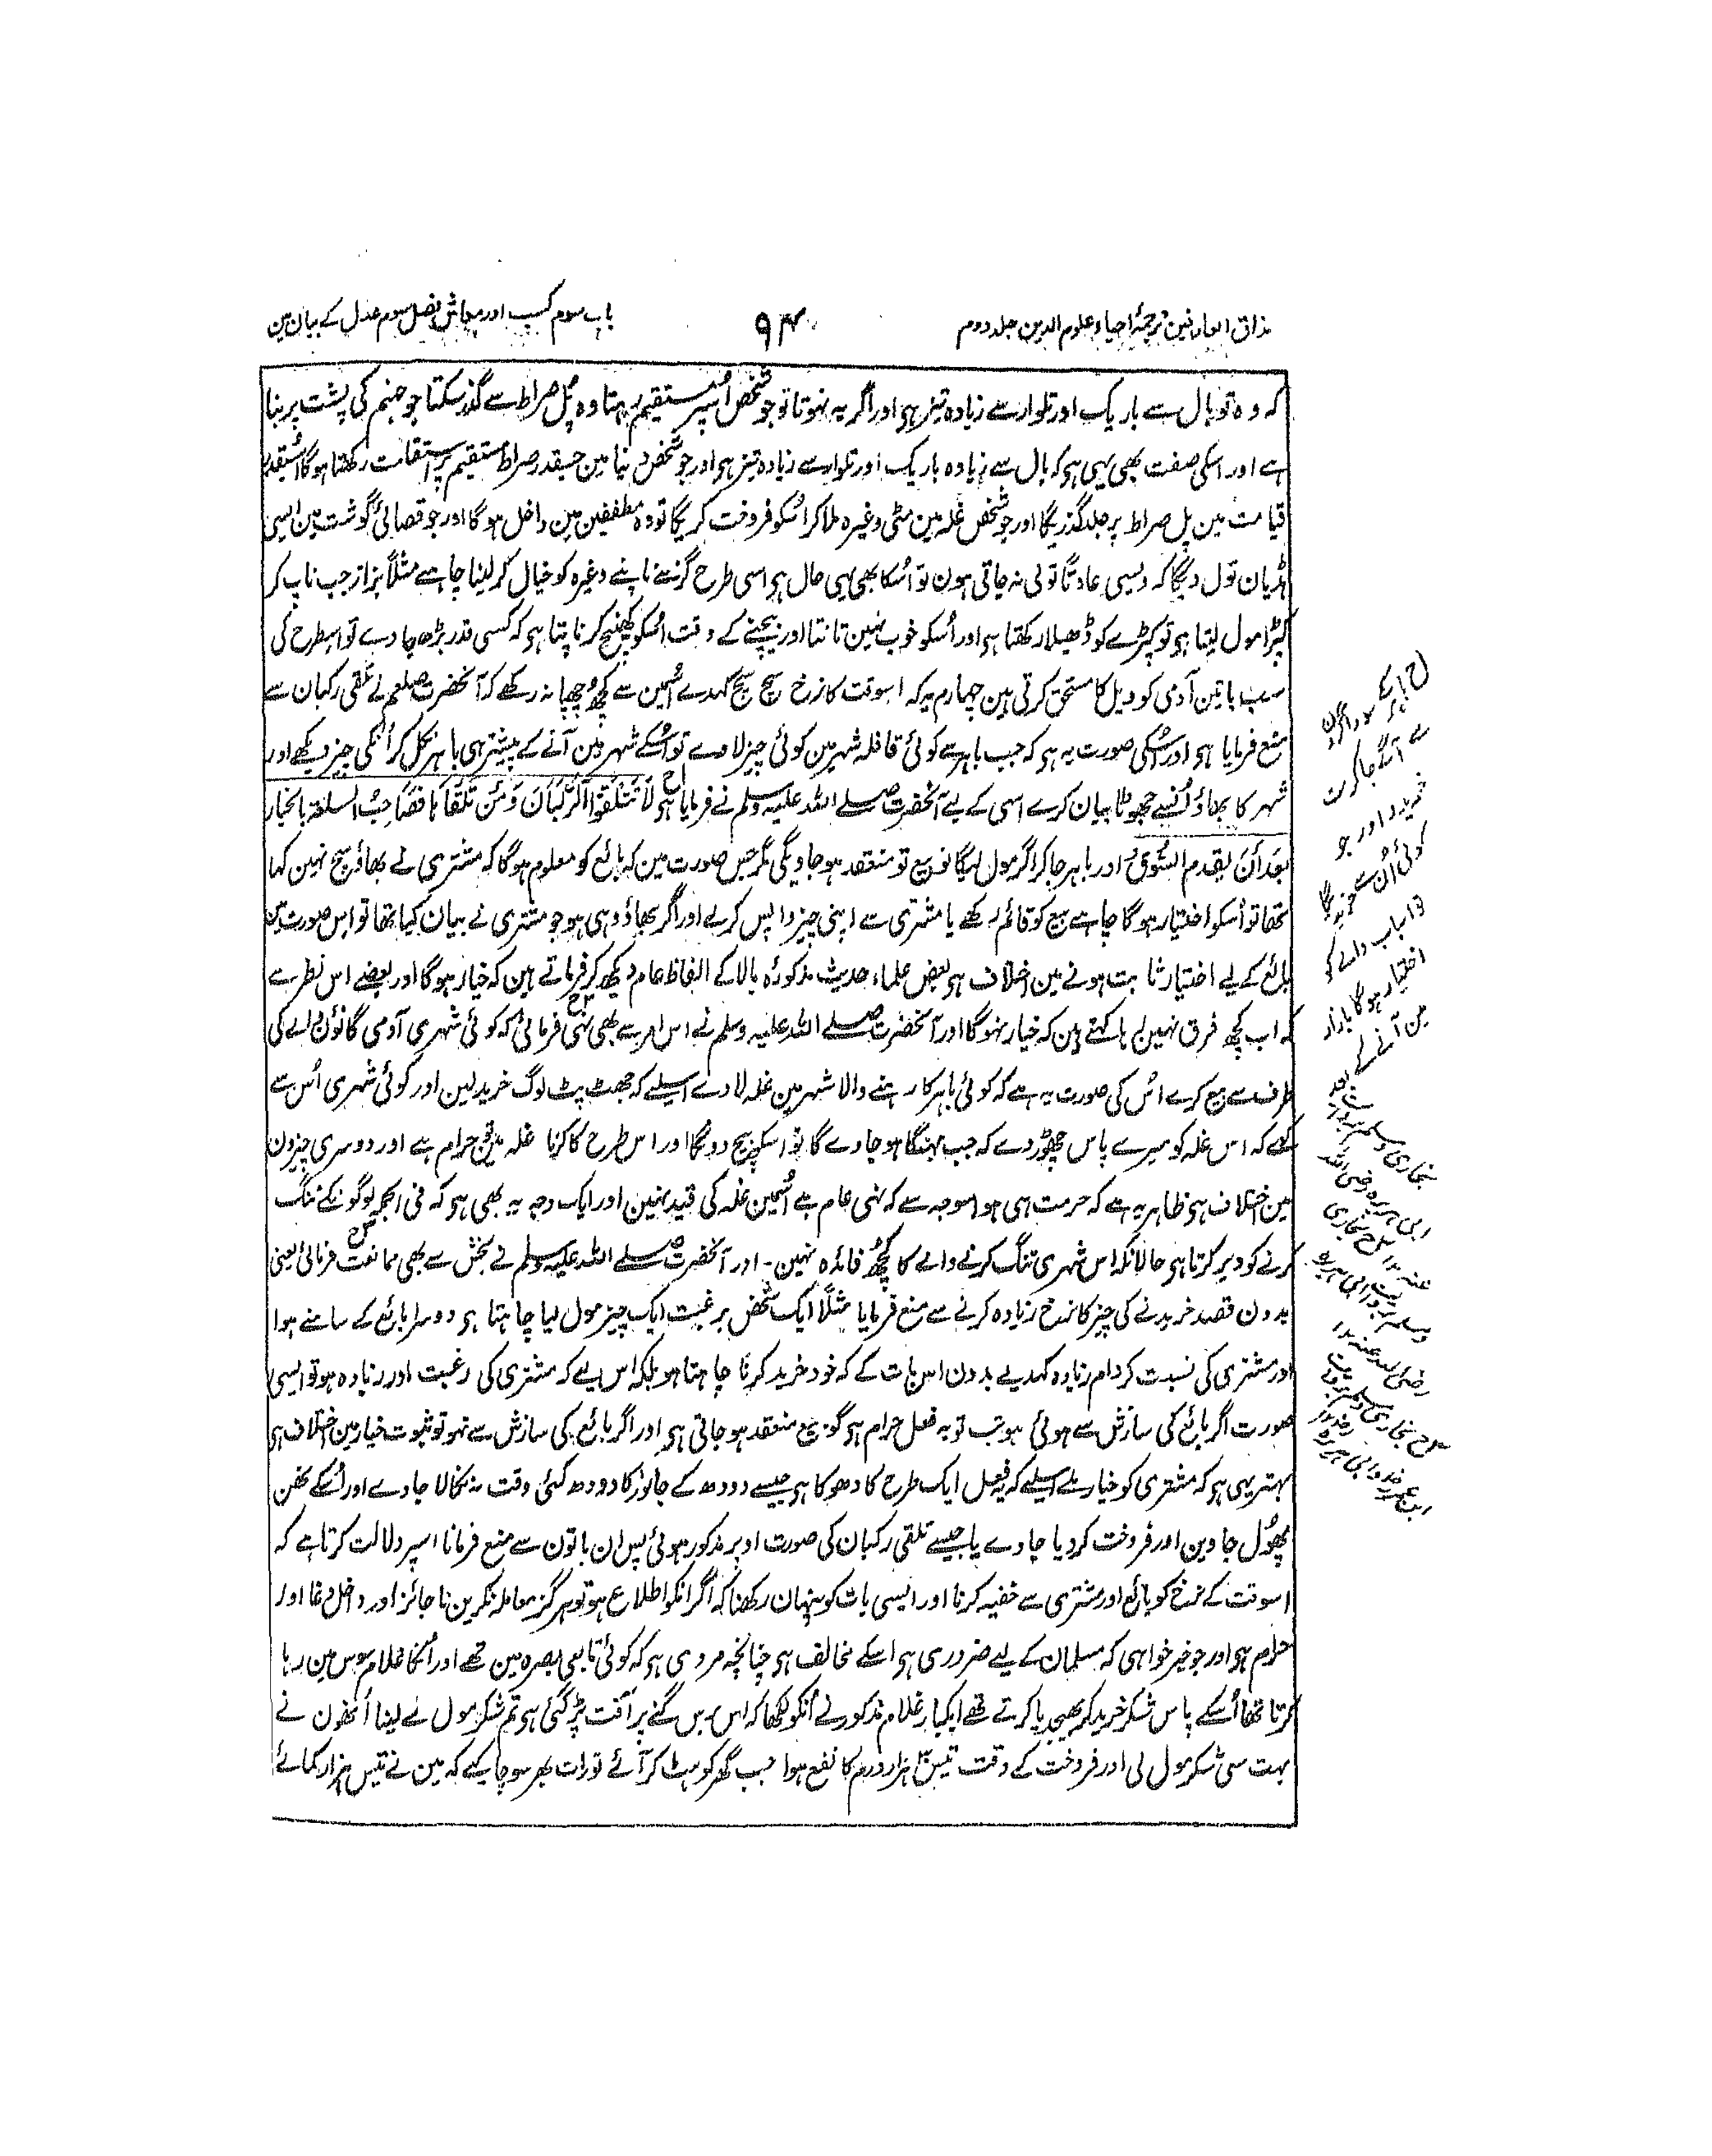 مذاق العارفین ترجمۂ احیاء علوم الدین جلد دوم
۹۴
باب سوم کسب اور معاش فصل سوم عدل کے بیان مین
کہ وہ تو بال سے باریک اور تلوار سے زیادہ تیز ہی اور اگر یہ نہوتا تو جو شخص اُسپر مستقیم رہتا وہ پل صراط سے گذر سکتا جو جہنم کی پشت پر بنا
ہے اور اسکی صفت بھی یہی ہو کہ بال سے زیادہ باریک اور تلوار سے زیادہ تیز ہو اور جو شخص دنیا مین جسقدر صراط مستقیم پر استقامت رکھتا ہوگا اُسیقدر
قیامت مین پل صراط پر جلد گذریگا اور جو شخص غلہ مین مٹی وغیرہ ملا کر اُسکو فروخت کریگا تو وہ مطففین مین داخل ہوگا اور جو قصائی گوشت مین ایسی
ہڈیان تول دیگا کہ ویسی عادتًا تولی نہ جاتی ہون تو اُسکا بھی یہی حال ہو اسی طرح گز سے ناپنے وغیرہ کو خیال کر لینا چاہیے مثلًا بزاز جب ناپ کر
کپڑا مول لیتا ہو تو کپڑے کو ڈھیلا رکھتا ہو اور اُسکو خوب نہین تانتا اور بیچنے کے وقت اُسکو کھینچ کر ناپتا ہو کہ کسی قدر بڑھ جاوے تو اسطرح کی
سب باتین آدمی کو ویل کا مستحق کرتی ہین چہارم یہ کہ اسوقت کا نرخ سچ سچ کہدے اُسمین سے کچھ چھپا نہ رکھے کہ آنحضرت صلعم نے تلقی رکبان سے
منع فرمایا ہو اور اُسکی صورت یہ ہو کہ جب باہر سے کوئی قافلہ شہر مین کوئی چیز لاوے تو اُسکے شہر مین آنے کے پیشتر ہی باہر نکل کر اُنکی چیز دیکھے اور
شہر کا بھاؤ اُنسے جھوٹا بیان کرے اسی کے لیے آنحضرت صلے اللہ علیہ وسلم نے فرمایا ہو لَا تَتَلَقَّوُا الرُّکْبَانَ وَمَنْ تَلَقَّاہَا فَصَاحِبُ السلعۃ بالخیار
بَعدَ أَنْ یقدم السُّوقَ اور باہر جا کر اگر مول لیگا تو بیع تو منعقد ہو جاویگی مگر جس صورت مین کہ بائع کو معلوم ہوگا کہ مشتری نے بھاؤ سچ نہین کہا
تھا تو اُسکو اختیار ہوگا چاہے بیع کو قائم رکھے یا مشتری سے اپنی چیز واپس کر لے اور اگر بھاؤ وہی ہو جو مشتری نے بیان کیا تھا تو اس صورت مین
بائع کے لیے اختیار ثابت ہونے مین اختلاف ہو بعض علماء حدیث مذکورۂ بالا کے الفاظ عام دیکھ کر فرماتے ہین کہ خیار ہوگا اور بعضے اس نظر سے
کہ اب کچھ فرق نہین رہا کہتے ہین کہ خیار نہوگا اور آنحضرت صلے اللہ علیہ وسلم نے اس امر سے بھی نہی فرمائی کہ کوئی شہری آدمی گانؤن والے کی
طرف سے بیع کرے اُس کی صورت یہ ہے کہ کوئی باہر کا رہنے والا شہر مین غلہ لاوے اسلیے کہ جھٹ پٹ لوگ خرید لین اور کوئی شہری اُس سے
کہے کہ اس غلہ کو میرے پاس چھوڑ دے کہ جب مہنگا ہو جاوے گا تو اسکو بیچ دونگا اور اس طرح کا کرنا غلہ مین تو حرام ہے اور دوسری چیزون
مین اختلاف ہو ظاہر یہ ہے کہ حرمت ہی ہو اسوجہ سے کہ نہی عام ہے اُسمین غلہ کی قید نہین اور ایک وجہ یہ بھی ہو کہ فی الجملہ لوگونکے تنگ
کرنے کو دیر کرتا ہو حالانکہ اس شہری تنگ کرنے والے کا کچھ فائدہ نہین۔ اور آنحضرت صلے اللہ علیہ وسلم نے نجش سے بھی ممانعت فرمائی یعنی
بدون قصد خریدنے کی چیز کا نرخ زیادہ کرنے سے منع فرمایا مثلًا ایک شخص برغبت ایک چیز مول لیا چاہتا ہو دوسرا بائع کے سامنے ہوا
اور مشتری کی نسبت کر دام زیادہ کہدیے بدون اس بات کے کہ خود خرید کرنا چاہتا ہو بلکہ اس لیے کہ مشتری کی رغبت اور زیادہ ہو تو ایسی
صورت اگر بائع کی سازش سے ہوئی ہو تب تو یہ فعل حرام ہو گو بیع منعقد ہو جاتی ہو اور اگر بائع کی سازش سے نہو تو ثبوت خیار مین اختلاف ہو
بہتر یہی ہو کہ مشتری کو خیار ملے اسلیے کہ یہ فعل ایک طرح کا دھوکا ہو جیسے دودھ کے جانور کا دودھ کئی وقت نہ نکالا جاوے اور اُسکے تھن
پھول جاوین اور فروخت کر دیا جاوے یا جیسے تلقی رکبان کی صورت اوپر مذکور ہوئی پس ان باتون سے منع فرمانا اسپر دلالت کرتا ہے کہ
اسوقت کے نرخ کو بائع اور مشتری سے خفیہ کرنا اور ایسی بات کو پنہان رکھنا کہ اگر انکو اطلاع ہو تو ہرگز معاملہ نکرین ناجائز اور داخل دغا اور
حرام ہو اور جو خیر خواہی کہ مسلمان کے لیے ضروری ہو اسکے مخالف ہو چنانچہ مروی ہو کہ کوئی تابعی بصرہ مین تھے اور اُنکا غلام سوس مین رہا
کرتا تھا اُسکے پاس شکر خرید کر بھیجدیا کرتے تھے ایکبار غلام مذکور نے اُنکو لکھا کہ اس برس گنے پر آفت پڑ گئی ہو تم شکر مول لے لینا اُنھون نے
بہت سی شکر مول لی اور فروخت کے وقت تیس ہزار درم کا نفع ہوا جب گھر کو ہٹ کر آئے تو رات بھر سوچا کیے کہ مین نے تیس ہزار کمائے
سے آگے جا کر مت
خریدو اور جو
کوئی اُن سے خریدیگا
تو اسباب والے کو
اختیار ہوگا بازار
مین آنے کے بعد